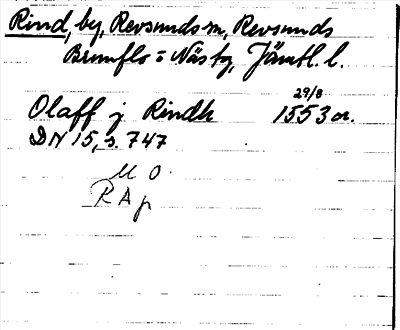 Rind, by, Revsunds sn, Revsunds
Brunflo o Näs tg, Jämtl. l.
29/8
Olaff j Rindh 1553 or.
DN 15, s. 747
M O.
RAp